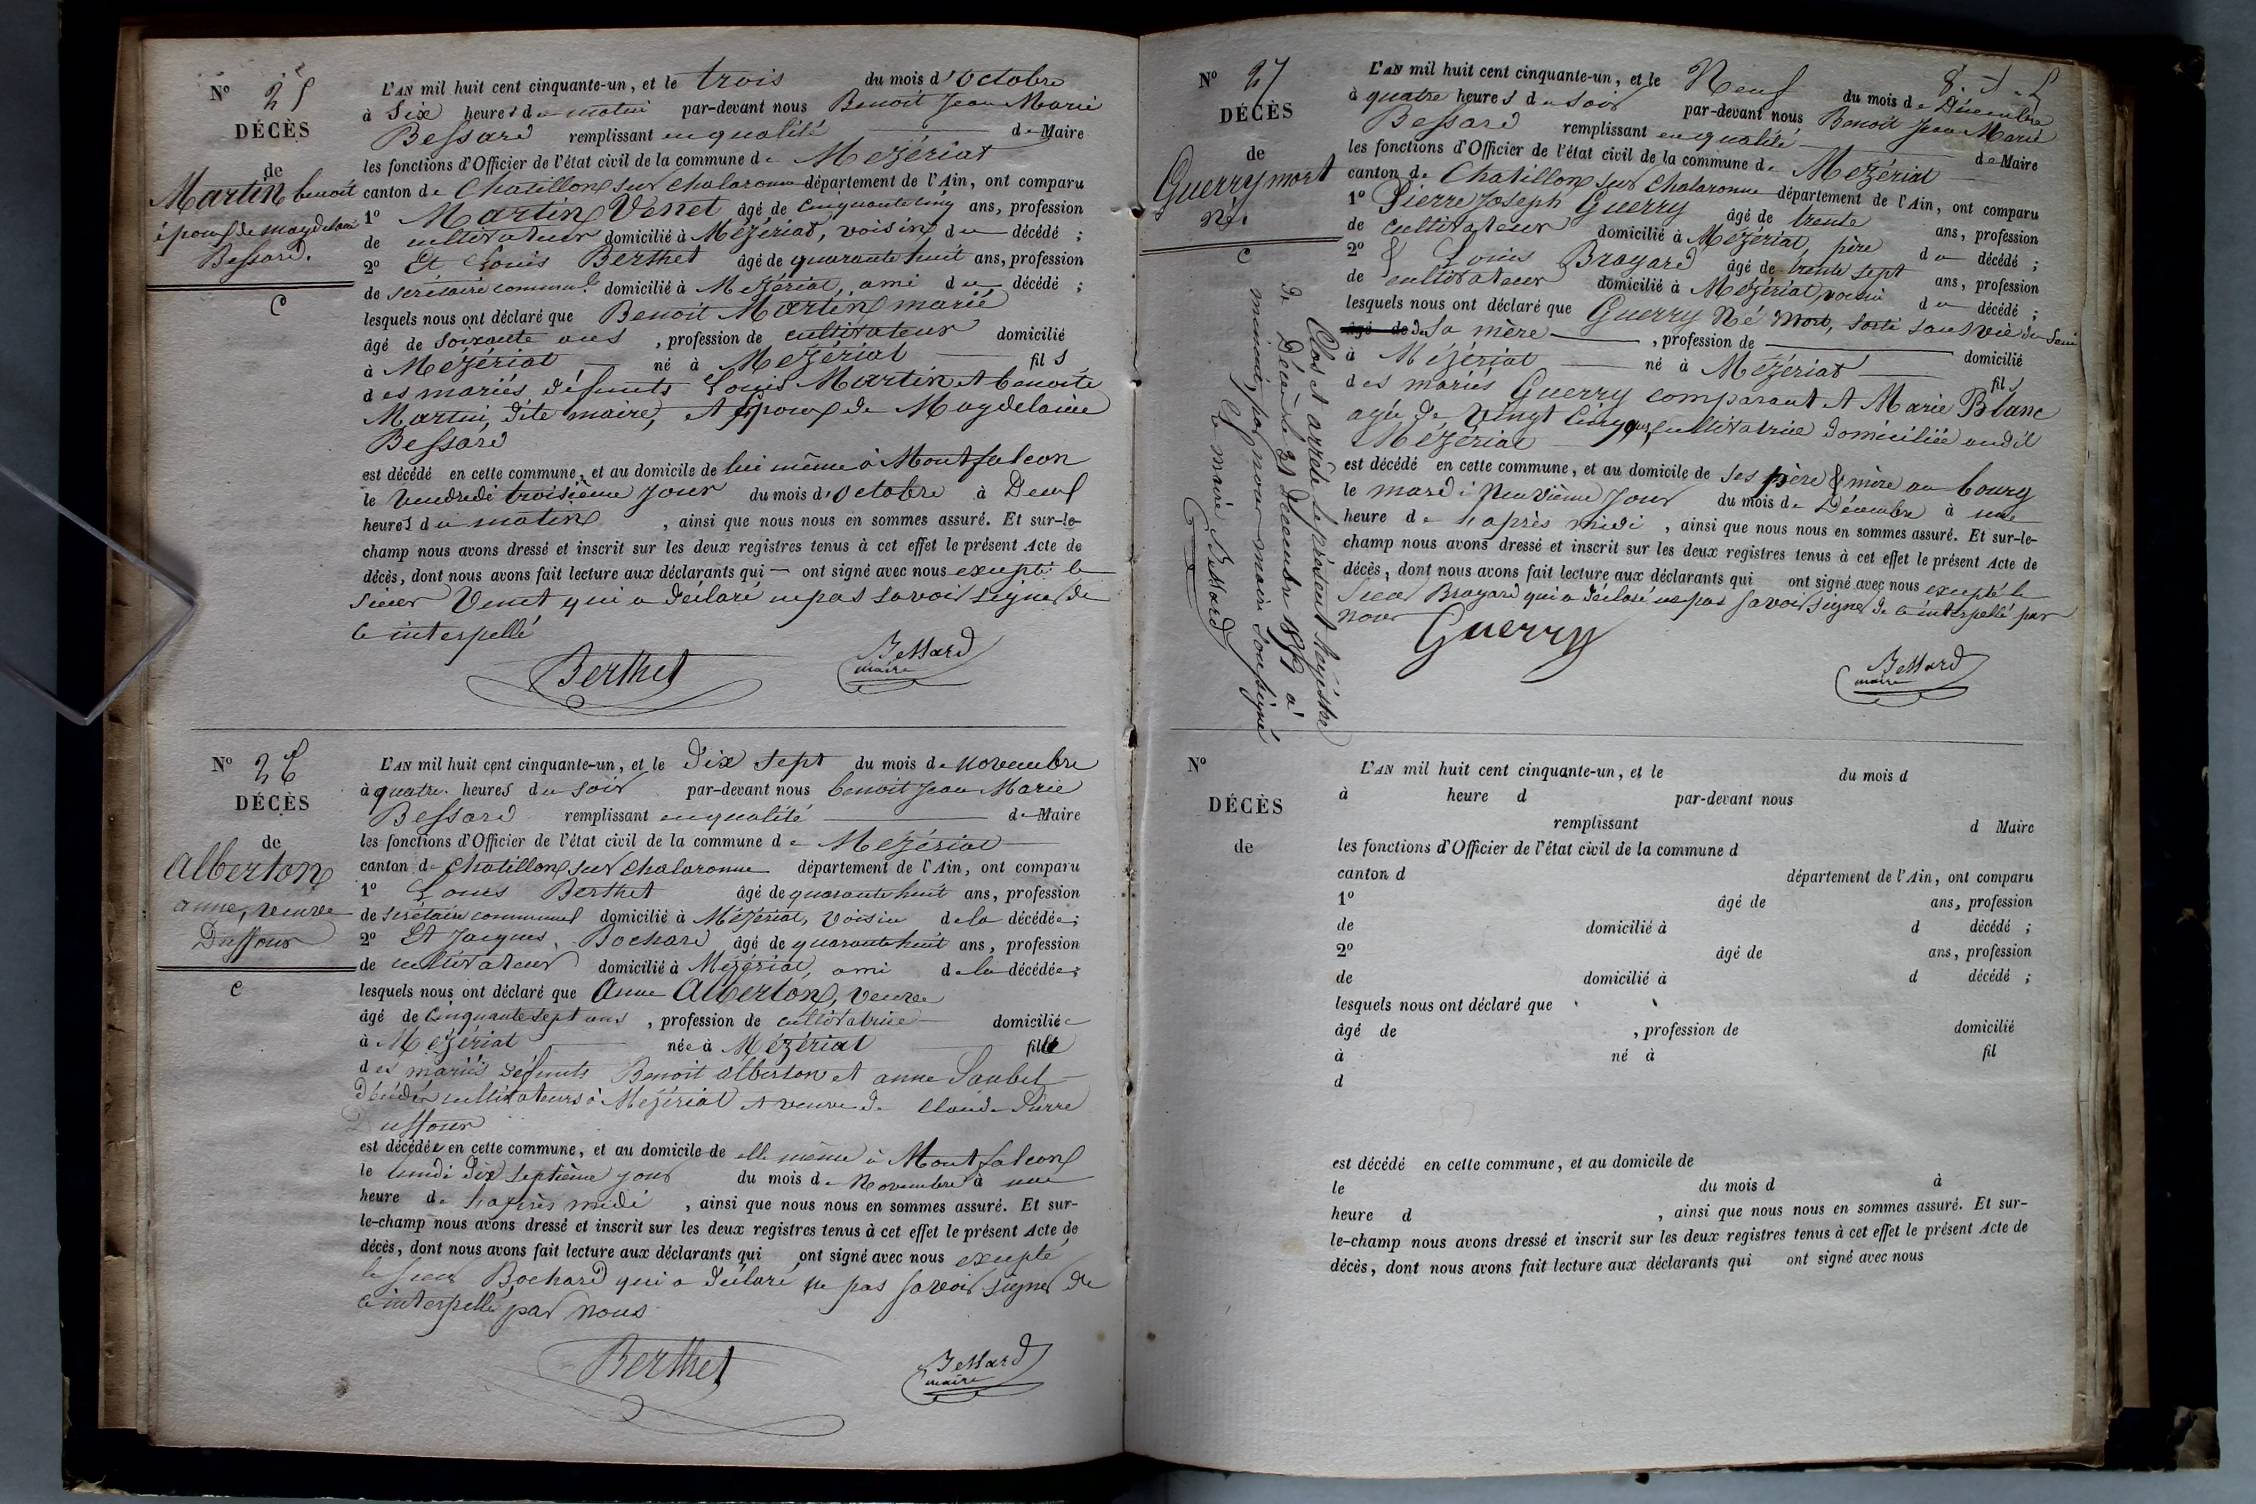 N° 25
DÉCÈS
de
Martin benoit
époux de magdelaine
Bessard.
C
L'AN mil huit cent cinquante-un, et le trois du mois d'Octobre
à Six heures du matin par-devant nous Benoit Jean Marie
Bessard remplissant en qualité de Maire
les fonctions d'Officier de l'état civil de la commune de Mézériat
canton de Chatillon sur Chalaronne département de l'Ain, ont comparu
1° Martin Venet âgé de cinquante cinq ans, profession
de cultivateur domicilié à Mézériat, voisin du décédé ;
2° Et Louis Berthet âgé de quarante huit ans, profession
de secrétaire commun.l domicilié à Mézériat, ami du décédé ;
lesquels nous ont déclaré que Benoit Martin marié
âgé de soixante ans , profession de cultivateur domicilié
à Mézériat né à Mézériat fils
des mariés défunts Louis Martin et benoite
Martin, dite maire, et Epoux de Magdelaine
Bessard
est décédé en cette commune, et au domicile de lui même à Montfalcon
le Vendredi troisième jour du mois d'Octobre à Deux
heures du matin , ainsi que nous nous en sommes assuré. Et sur-le-
champ nous avons dressé et inscrit sur les deux registres tenus à cet effet le présent Acte de
décès, dont nous avons fait lecture aux déclarants qui — ont signé avec nous excepté le
sieur Venet qui a déclaré ne pas savoir signer de
ce interpellé
Berthet Bessard
maire
N° 26
DÉCÈS
de
Alberton
anne, veuve
Duffour
C
L'AN mil huit cent cinquante-un, et le Dix sept du mois de novembre
à quatre heures du soir par-devant nous benoit Jean Marie
Bessard remplissant en qualité de Maire
les fonctions d'Officier de l'état civil de la commune de Mézériat
canton de Chatillon sur Chalaronne département de l'Ain, ont comparu
1° Louis Berthet âgé de quarante huit ans, profession
de secrétaire communal domicilié à Mézériat, voisin de la décédée ;
2° Et Jacques Bochard âgé de quarante huit ans, profession
de cultivateur domicilié à Mézériat, ami de la décédée ;
lesquels nous ont déclaré que Anne Alberton, veuve
âgé de cinquante sept ans , profession de cultivatrice domiciliée
à Mézériat née à Mézériat fille
des mariés défunts Benoit Alberton et anne
cultivateurs à Mézériat et veuve de Claude Pierre
Duffour
est décédée en cette commune, et au domicile de elle même à Montfalcon
le lundi Dix septième jour du mois de Novembre à une
heure de l'après midi , ainsi que nous nous en sommes assuré. Et sur-
le-champ nous avons dressé et inscrit sur les deux registres tenus à cet effet le présent Acte de
décès, dont nous avons fait lecture aux déclarants qui ont signé avec nous excepté
le sieur Bochard qui a déclaré ne pas savoir signer de
ce interpellé par nous
Berthet Bessard
maire
N° 27
DÉCÈS
de
Guerry mort
né.
C
L'AN mil huit cent cinquante-un, et le Neuf du mois de Décembre
à quatre heures du soir par-devant nous Benoit Jean Marie
Bessard remplissant en qualité de Maire
les fonctions d'Officier de l'état civil de la commune de Mézériat
canton de Chatillon sur Chalaronne département de l'Ain, ont comparu
1° Pierre Joseph Guerry âgé de trente ans, profession
de cultivateur domicilié à Mézériat, père du décédé ;
2° & Louis Brayard âgé de trente sept ans, profession
de cultivateur domicilié à Mézériat, voisin du décédé ;
lesquels nous ont déclaré que Guerry Né Mort, sorti sans vie du sein
âgé de de sa mère , profession de domicilié
à Mézériat né à Mézériat fils
des mariés Guerry comparant et Marie Blanc
agée de vingt cinq ans, cultivatrice domiciliée audit
Mézériat
est décédé en cette commune, et au domicile de ses père & mère au bourg
le mardi Neuvième jour du mois de Décembre à une
heure de l'après midi , ainsi que nous nous en sommes assuré. Et sur-le-
champ nous avons dressé et inscrit sur les deux registres tenus à cet effet le présent Acte de
décès, dont nous avons fait lecture aux déclarants qui ont signé avec nous excepté le
Sieur Brayard qui a déclaré ne pas savoir signer de ce interpellé par
nous
Guerry Bessard
maire
Clos et arrêté le présent Registre
de Décès le 31 Décembre 1851 à
minuit, par nous maire soussigné
Le maire Bessard
N°
DÉCÈS
de
L'AN mil huit cent cinquante-un, et le du mois d
à heure d par-devant nous
remplissant d Maire
les fonctions d'Officier de l'état civil de la commune d
canton d département de l'Ain, ont comparu
1° âgé de ans, profession
de domicilié à d décédé ;
2° âgé de ans, profession
de domicilié à d décédé ;
lesquels nous ont déclaré que
âgé de , profession de domicilié
à né à fil
d
est décédé en cette commune, et au domicile de
le du mois d à
heure d , ainsi que nous nous en sommes assuré. Et sur-
le-champ nous avons dressé et inscrit sur les deux registres tenus à cet effet le présent Acte de
décès, dont nous avons fait lecture aux déclarants qui ont signé avec nous